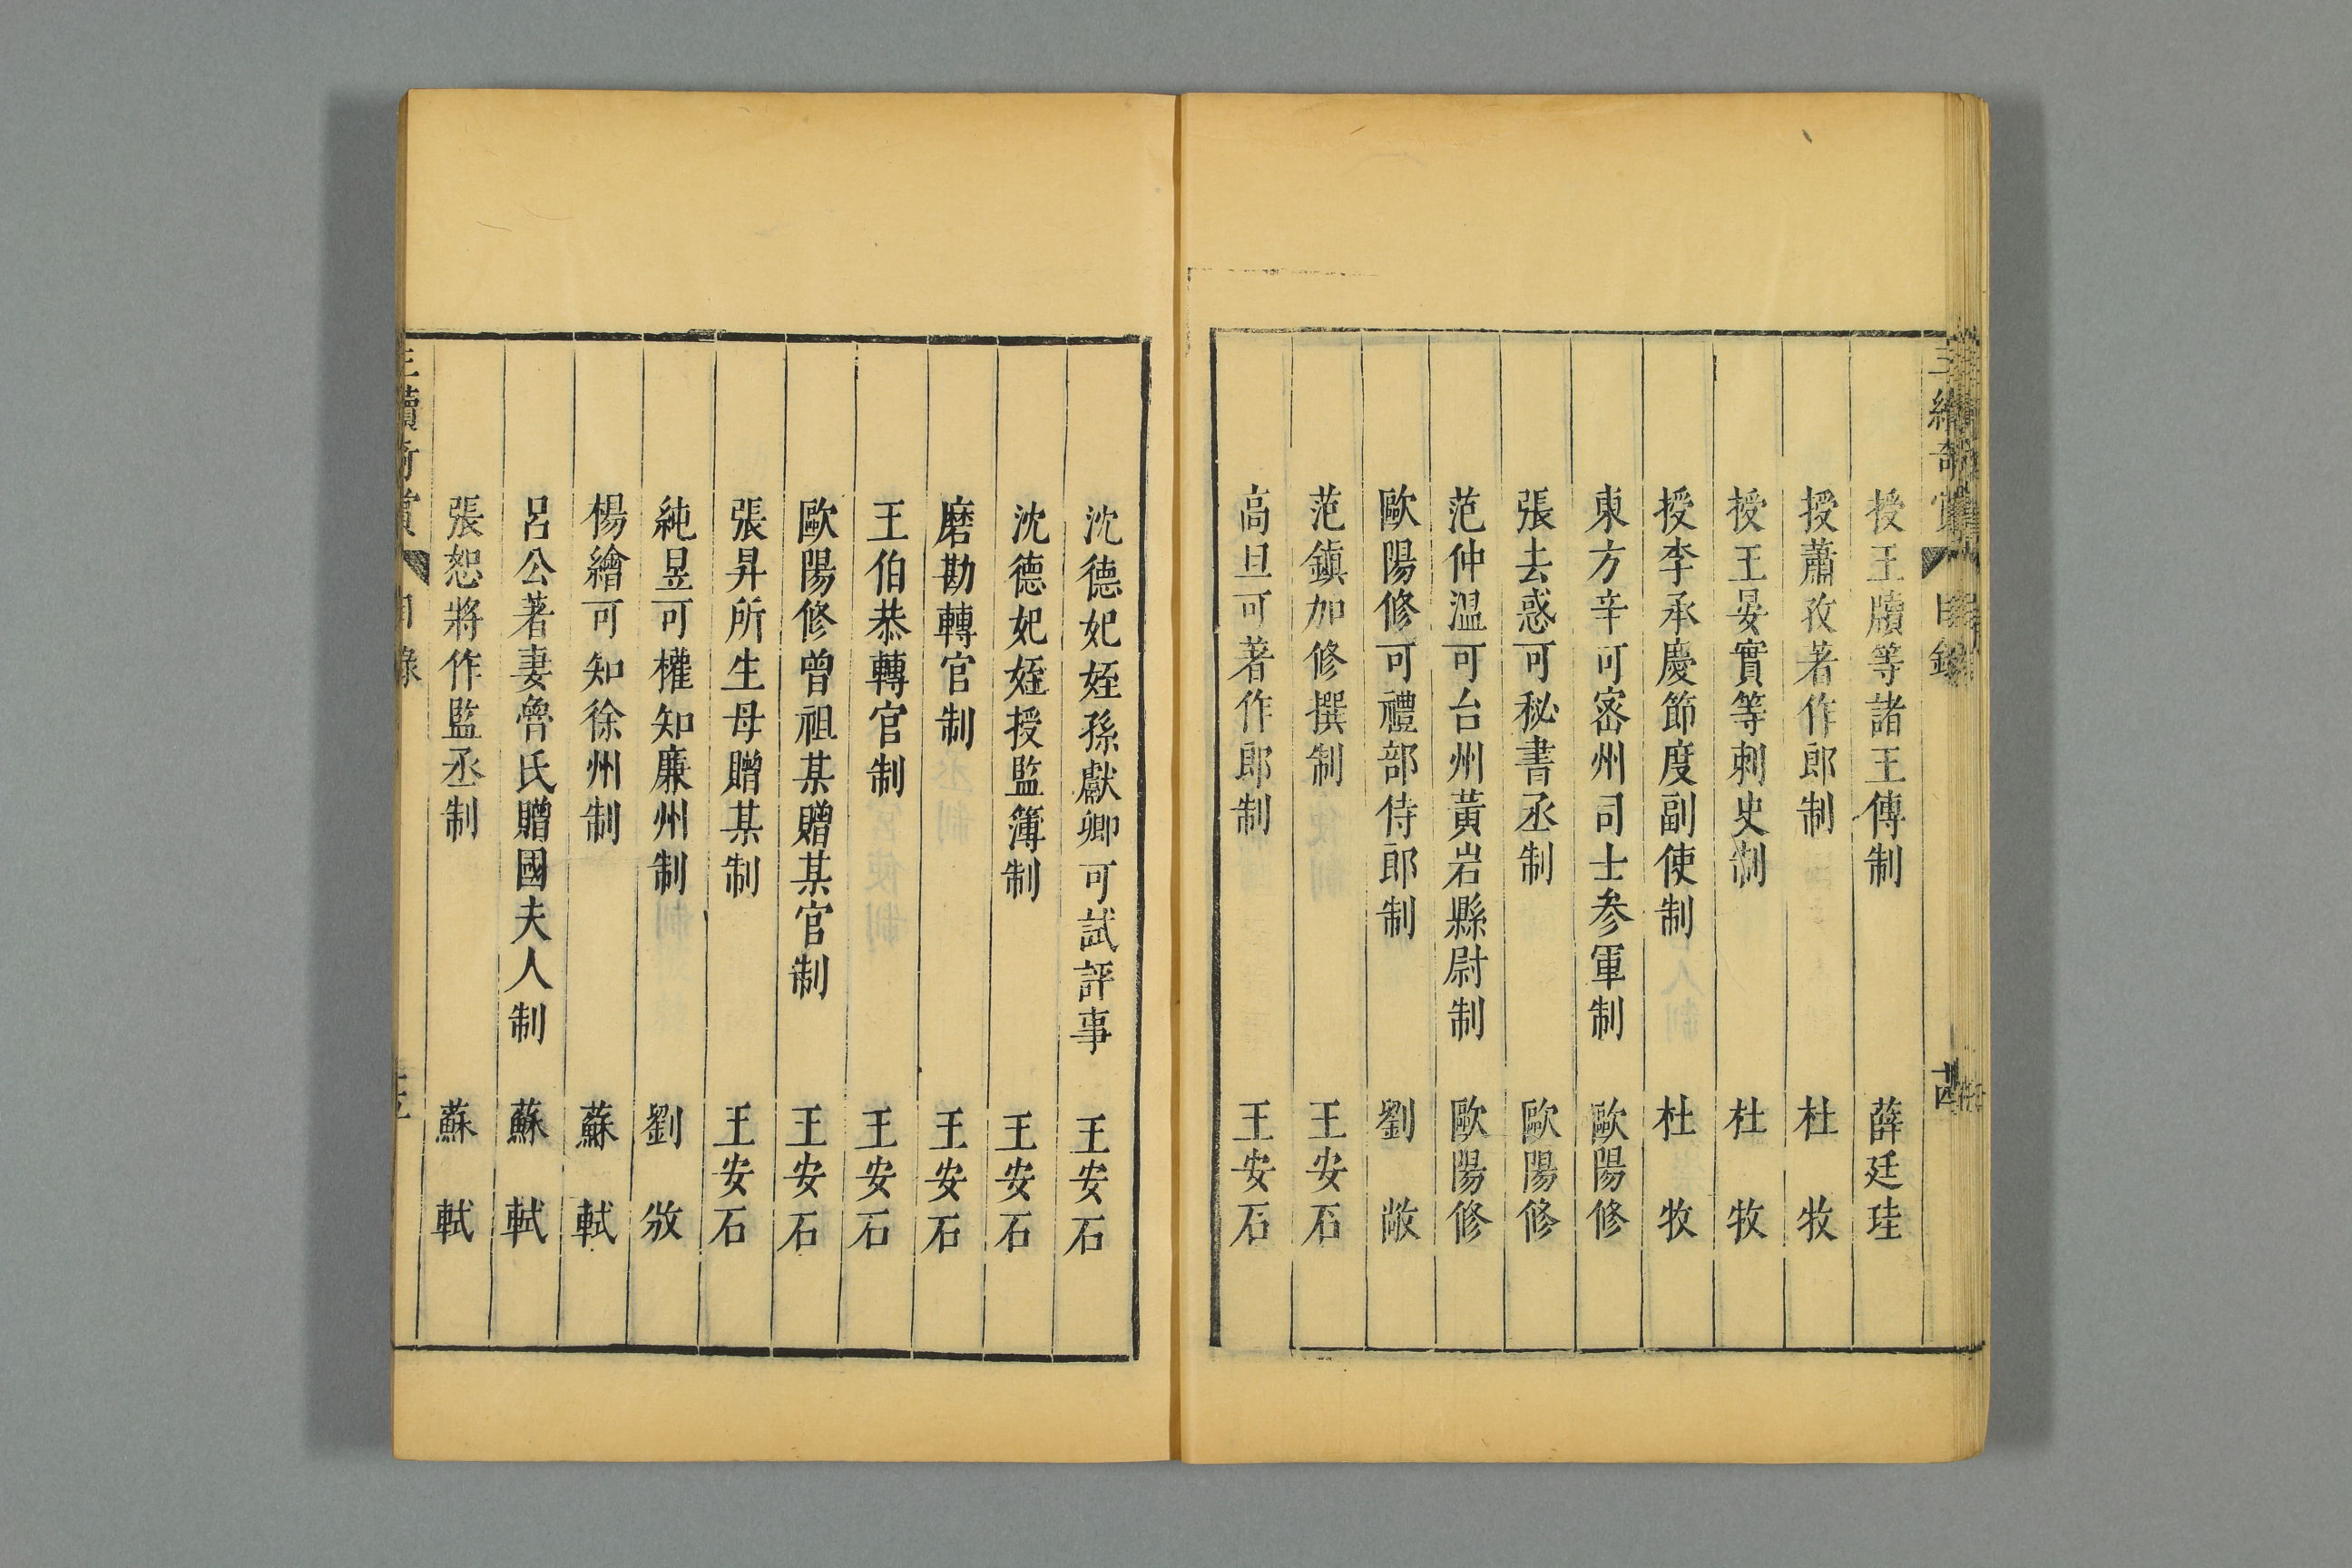 授王牘等諸王傅制 薛廷珪
授蕭孜著作郎制 杜牧
授王晏實等刺史制 杜牧
授李承慶節度副使制 杜牧
東方辛可密州司士参軍制 歐陽修
張去惑可秘書丞制 歐陽修
范仲温可台州黃岩縣尉制 歐陽修
歐陽修可禮部侍郎制 劉敞
范鎮加修撰制 王安石
高旦可著作郎制 王安石
沈德妃姪孫獻卿可試評事 王安石
沈德妃姪授監簿制 王安石
磨勘轉官制 王安石
王伯恭轉官制 王安石
歐陽修曾祖某贈某官制 王安石
張昇所生母贈某制 王安石
純昱可權知廉州制 劉攽
楊繪可知徐州制 蘇軾
呂公著妻魯氏贈國夫人制 蘇軾
張恕將作監丞制 蘇軾